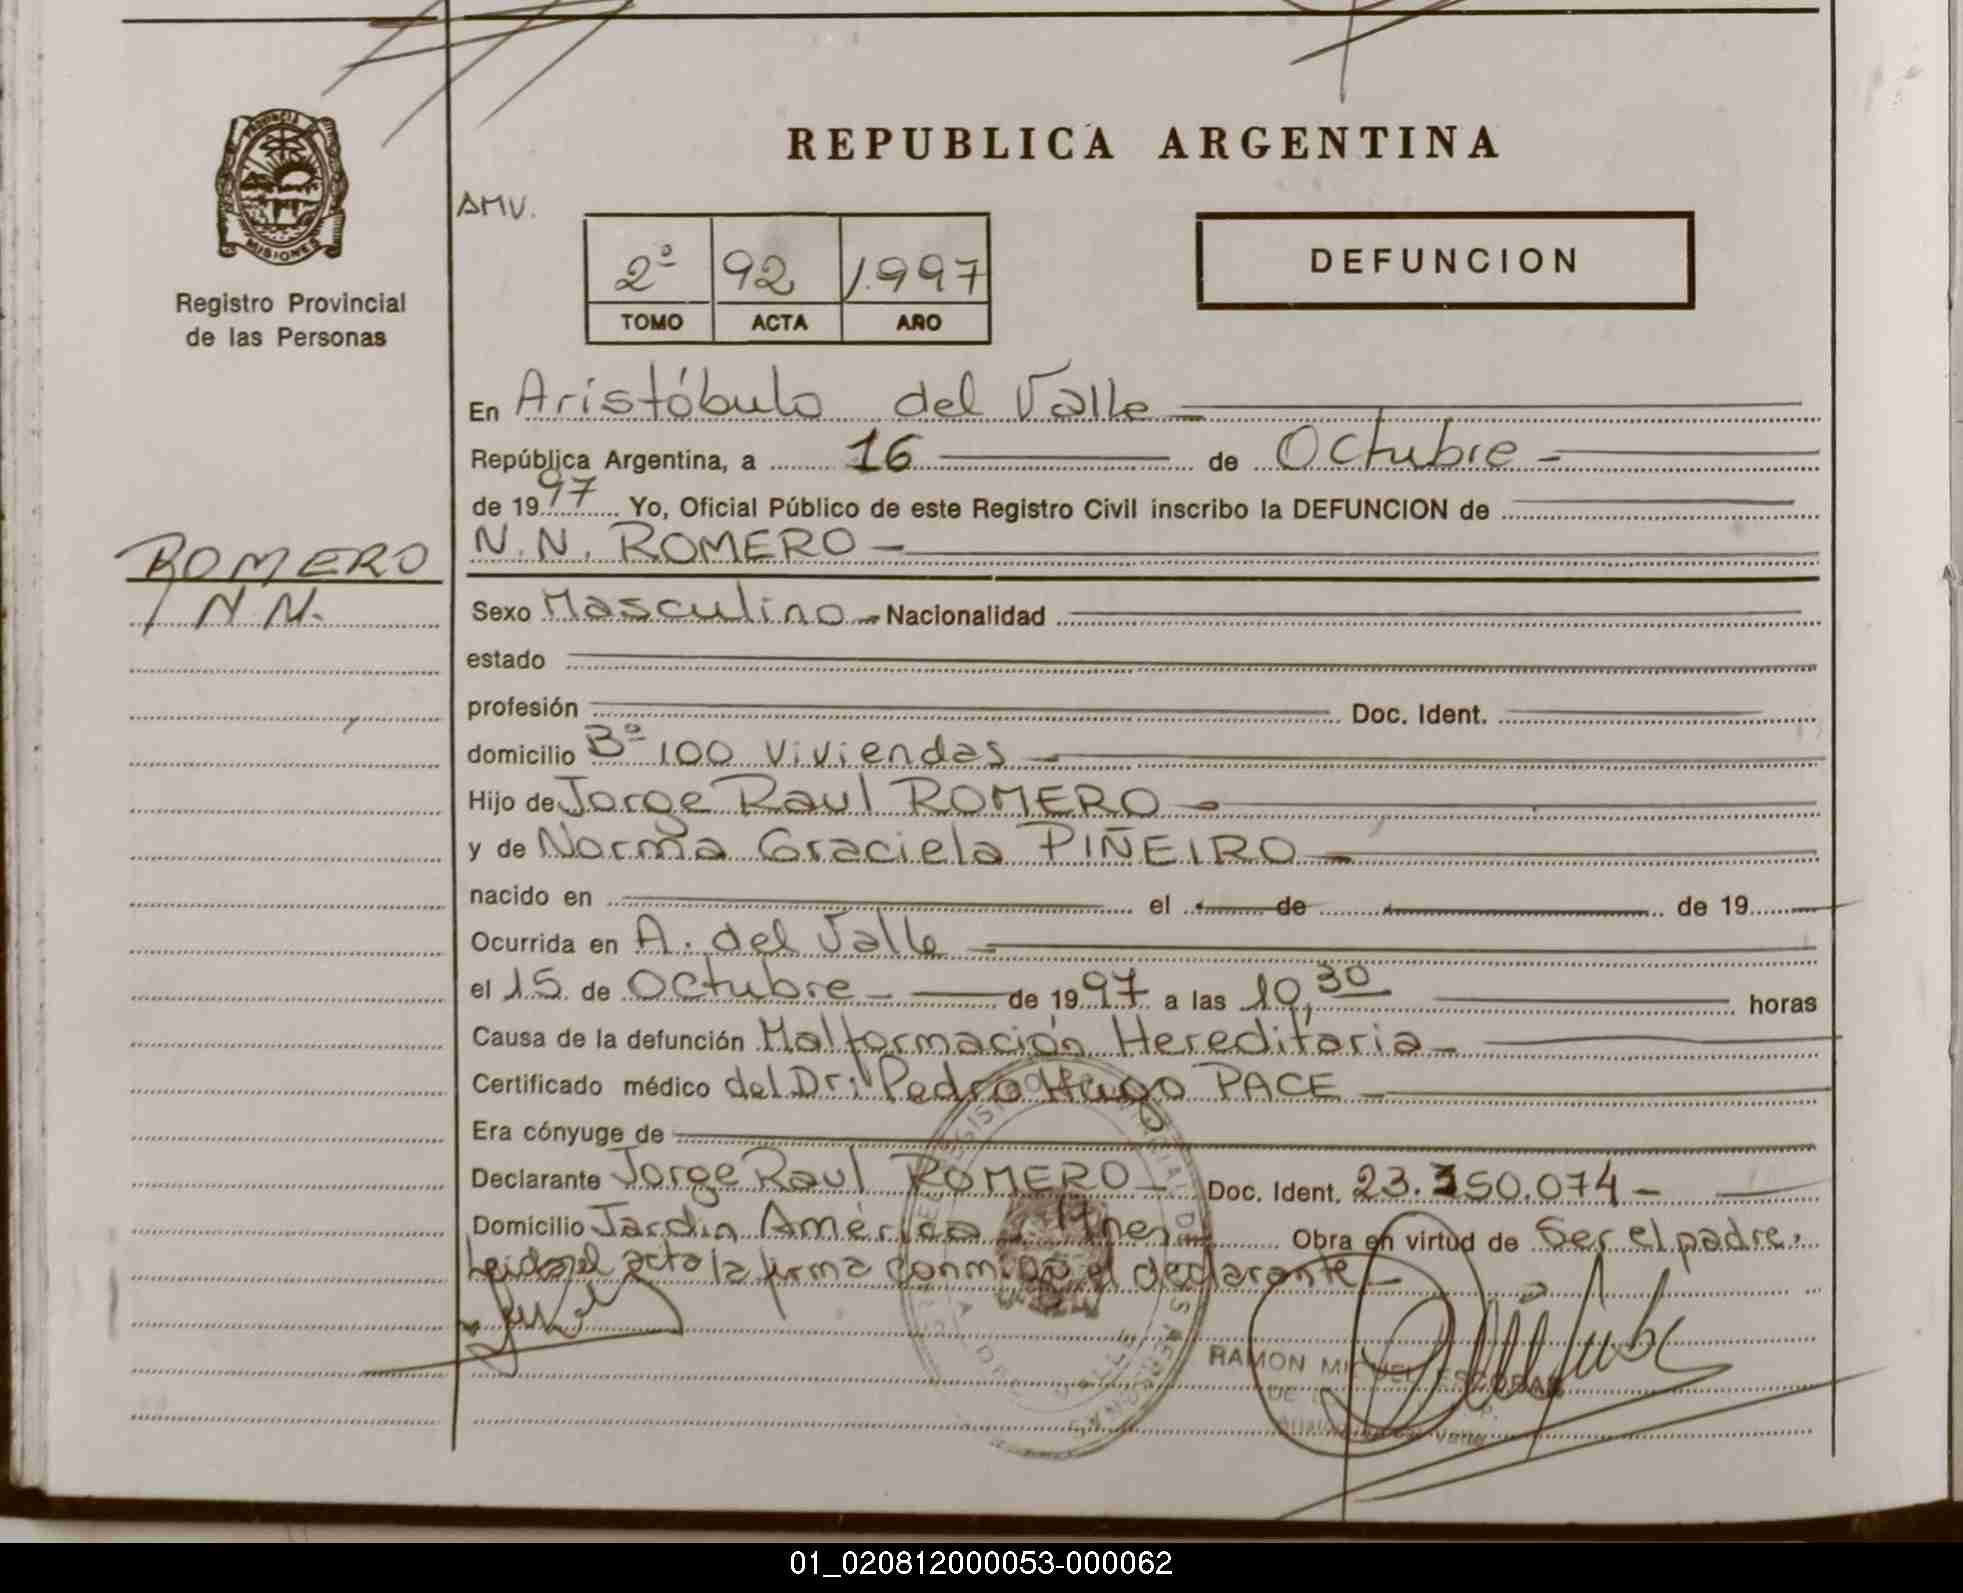 REPUBLICA ARGENTINA
PROVINCIA DE MISIONES
Registro Provincial
de las Personas
AMV.
2º 92 1.997
TOMO ACTA AÑO
DEFUNCION
En Aristóbulo del Valle
República Argentina, a 16 de Octubre
de 1997 Yo, Oficial Público de este Registro Civil inscribo la DEFUNCION de
N.N. ROMERO
ROMERO
N.N.
Sexo Masculino Nacionalidad
estado
profesión Doc. Ident.
domicilio Bº 100 Viviendas
Hijo de Jorge Raul ROMERO
y de Norma Graciela PIÑEIRO
nacido en el de de 19
Ocurrida en A. del Valle
el 15 de Octubre de 1997 a las 10,30 horas
Causa de la defunción Malformación Hereditaria
Certificado médico del Dr. Pedro Hugo PACE
Era cónyuge de
Declarante Jorge Raul ROMERO Doc. Ident. 23.350.074
Domicilio Jardin América Mnes Obra en virtud de Ser el padre.
Leida el acta la firma conmigo el declarante
RAMON MIGUEL ESCOBAR
01_020812000053-000062